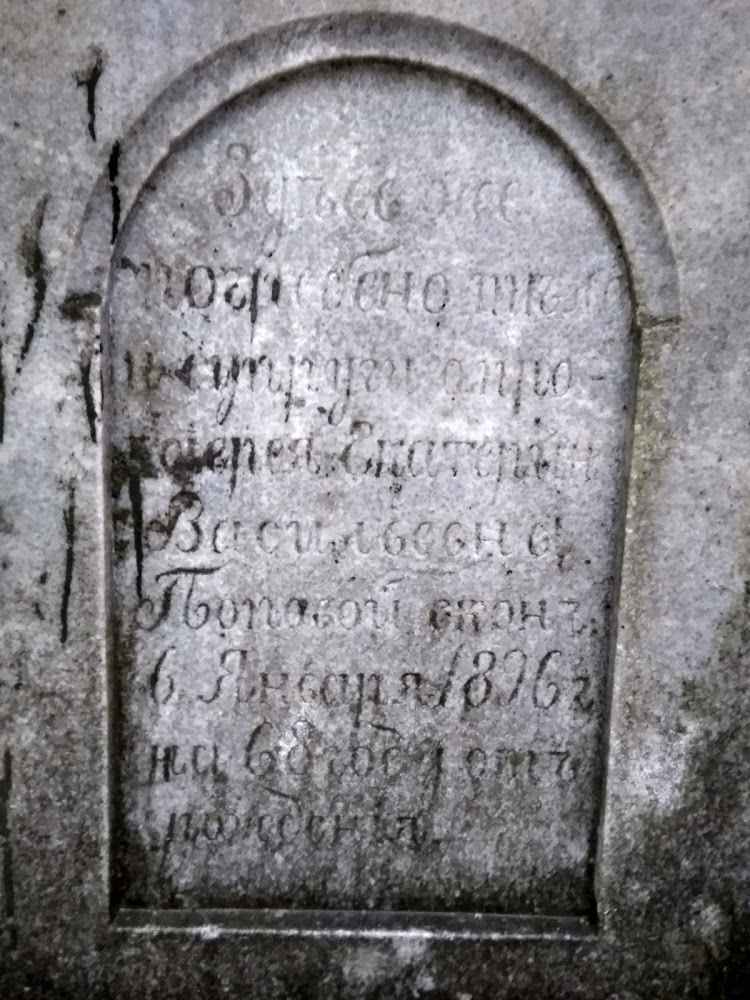 Здѣсь же
погребено тѣло
и супруги о. про-
тоіерея Екатерины
Васильевны
Поповой сконч.
6 Января 1896 г.
на 68 году отъ
рождения.